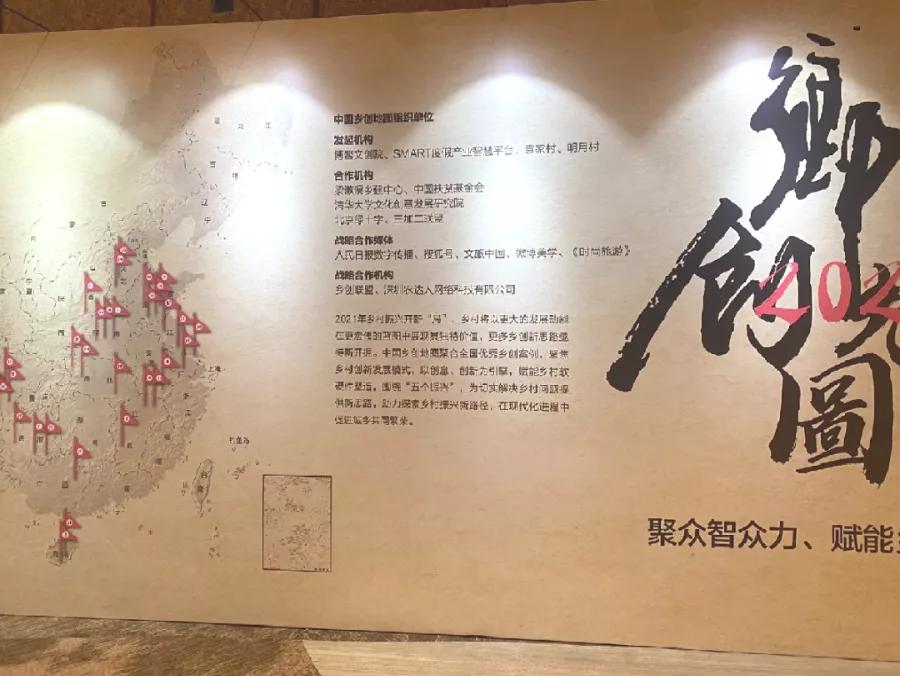 中国乡创地图组织单位
发起机构
博智文创院、SMART度假产业智慧平台、袁家村、明月村
合作机构
梁漱溟乡建中心、中国扶贫基金会
清华大学文化创意发展研究院
北京绿十字、三加二联盟
战略合作媒体
人民日报数字传播、搜狐号、文旅中国、微博美学、《时尚旅游》
战略合作机构
乡创联盟、深圳农达人网络科技有限公司
2021年乡村振兴开新“局”，乡村将以更大的发展动能
在更宏伟的蓝图中展现其独特价值，更多乡创新思路亟
待新开掘。中国乡创地图聚合全国优秀乡创案例，聚焦
乡村创新发展模式，以创意、创新为引擎，赋能乡村软
硬件塑造，围绕“五个振兴”，为切实解决乡村问题提
供新思路，助力探索乡村振兴新路径，在现代化进程中
促进城乡共同繁荣。
鄉
創
202
圖
聚众智众力、赋能
黑 龙 江
吉
辽
宁
上海
钓鱼岛
台